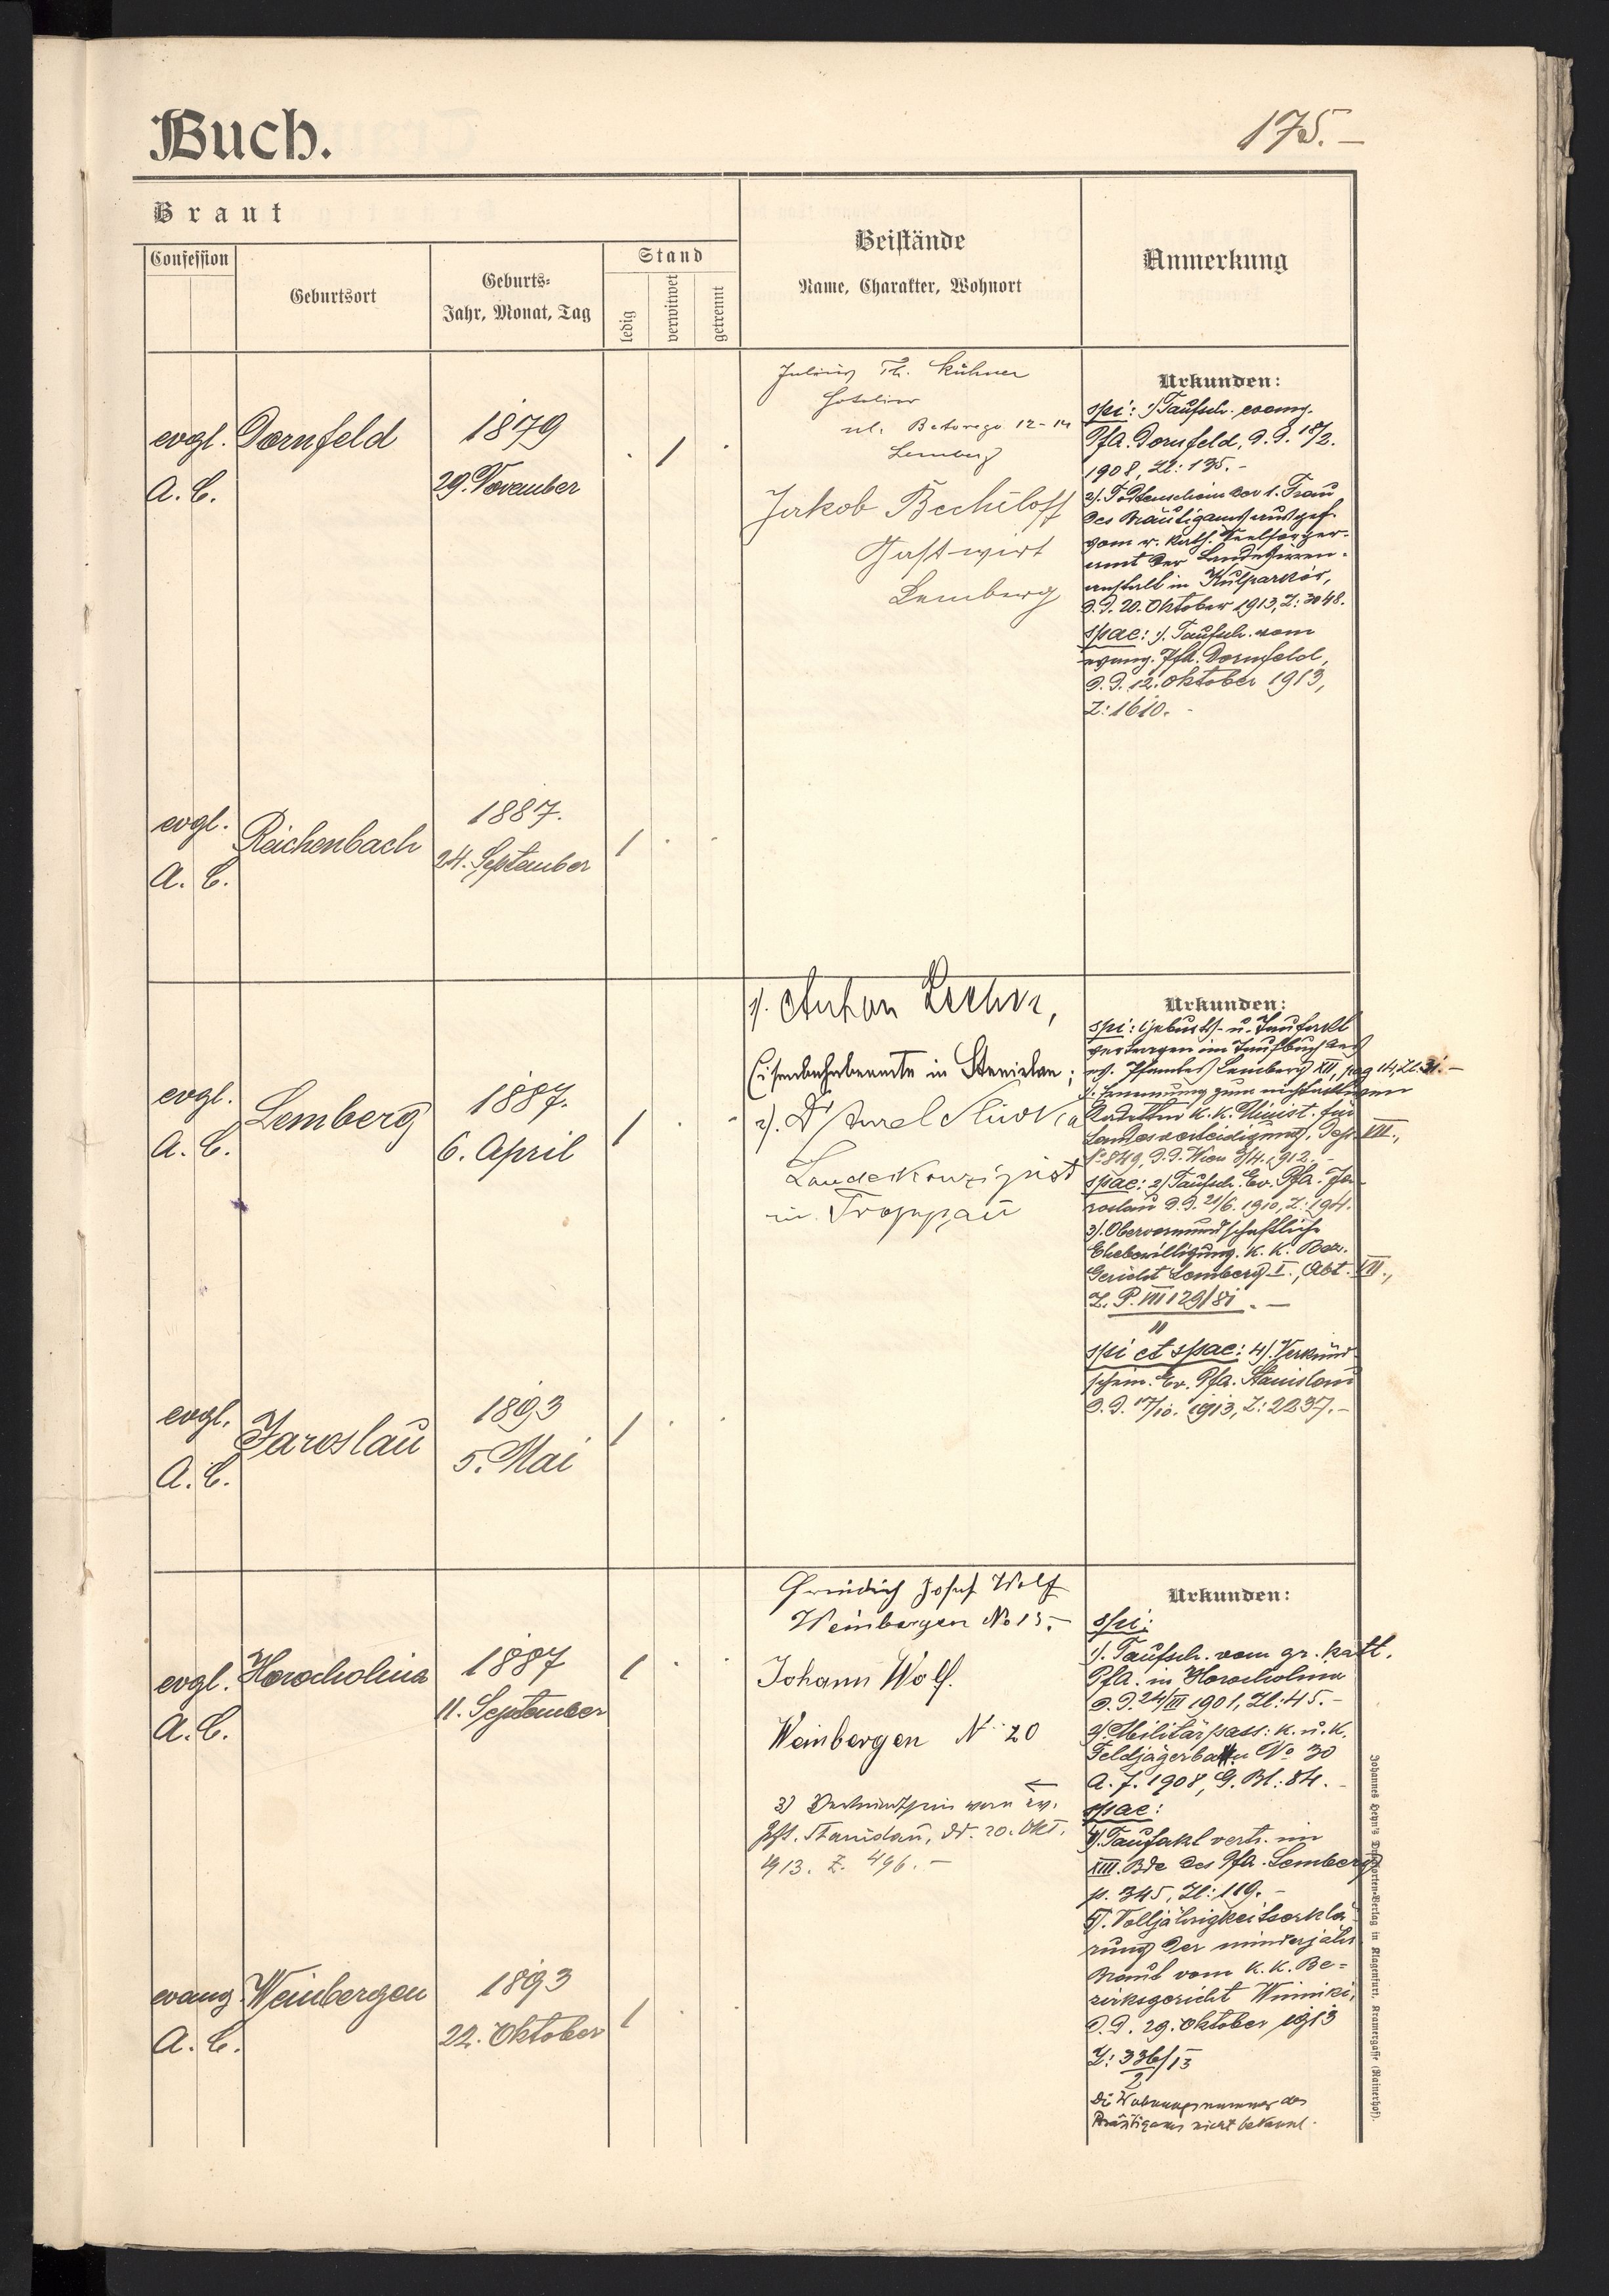 Buch.
175.-
Braut
Confession
Geburtsort
Geburts-
Jahr, Monat, Tag
Stand
ledig
verwitwet
getrennt
Beistände
Name, Charakter, Wohnort
Anmerkung
evgl.
A. C.
Dornfeld
1879
29. November
1
Julius Th. Kühner
Hotelier
ul. Batorego 12-14
Lemberg
Jakob Bechtloff
Gastwirt
Lemberg
Urkunden:
spi: 1) Taufsch. evang.
Pfa. Dornfeld, d. d. 18/2.
1908, Zl: 135.-
2). Todtenschein der 1. Frau
des Bräutigams ausgef.
vom r. kath. Seelsorger-
amt der Landesirren-
anstalt in Kulparków,
d. d. 20. Oktober 1913, Z: 3048.
spae: 1). Taufsch. vom
evang. Pfa. Dornfeld,
d. d. 12. Oktober 1913,
Z: 1610.-
evgl.
A. C.
Reichenbach
1887.
24. September
1
evgl.
A. C.
Lemberg
1887.
6. April
1
1). Anton
Eisenbahnbeamte in Stanislau;
2). Dr Aurel
Landeskonzipist
in Troppau
Urkunden:
spi: Geburts- u. Taufakt
vertragen im Taufbuch des
ev. Pfamtes Lemberg XII, pag 14, Zl. 31.-
1). Ernennung zum nichtaktiven
Kadetten K. K. Minist. für
Landesverteidigung, Dep. VII.,
No 849, d. d. Wien 3/4. 1912.-
spae: 2) Taufsch. Ev. Pfa. Ja-
roslau d. d. 21/6. 1910, Z: 194.
3). Obervormundschaftliche
Ehebewilligung. K. K. Bez.
Gericht Lemberg I., Abt. VII.,
Z. P. VII 129/81.-
11
spi et spae: 4). Verkünd-
schein. Ev. Pfa. Stanislau
d. d. 17/10. 1913, Z: 2237.-
evgl.
A. C.
Jaroslau
1893
5. Mai
1
evgl.
A. C.
Horocholina
1887
11. September
1
Friedrich Josef Wolf
Weinbergen No 15.-
Johann Wolf.
Weinbergen No 20
3) Verkündschein vom ev.
Pfa. Stanislau, dd. 20. Okt.
1913. Z. 496.-
Urkunden:
spi:
1). Taufsch. vom gr. kath.
Pfa. in Horocholina
d. d. 24/III 1901, Zl: 45.-
2). Militärpass: K. u. K.
Feldjägerbatt. No 30
A. J. 1908, G. Bl.: 84.-
spae:
4). Taufakt vertr. im
XIII. Bde des Pfa. Lemberg
p. 345, Zl: 119.-
5). Volljährigkeitserklä-
rung der minderjähr.
Braut vom K. K. Be-
zirksgericht Winniki,
d. d. 29. Oktober 1913
Z: 336/13
2
Die Wohnungsnummer des
Bräutigams nicht bekannt.
evang.
A. C.
Weinbergen
1893
22. Oktober
1
Johannes Heyn's Drucksorten-Verlag in Klagenfurt, Kramergasse (Rainerhof).